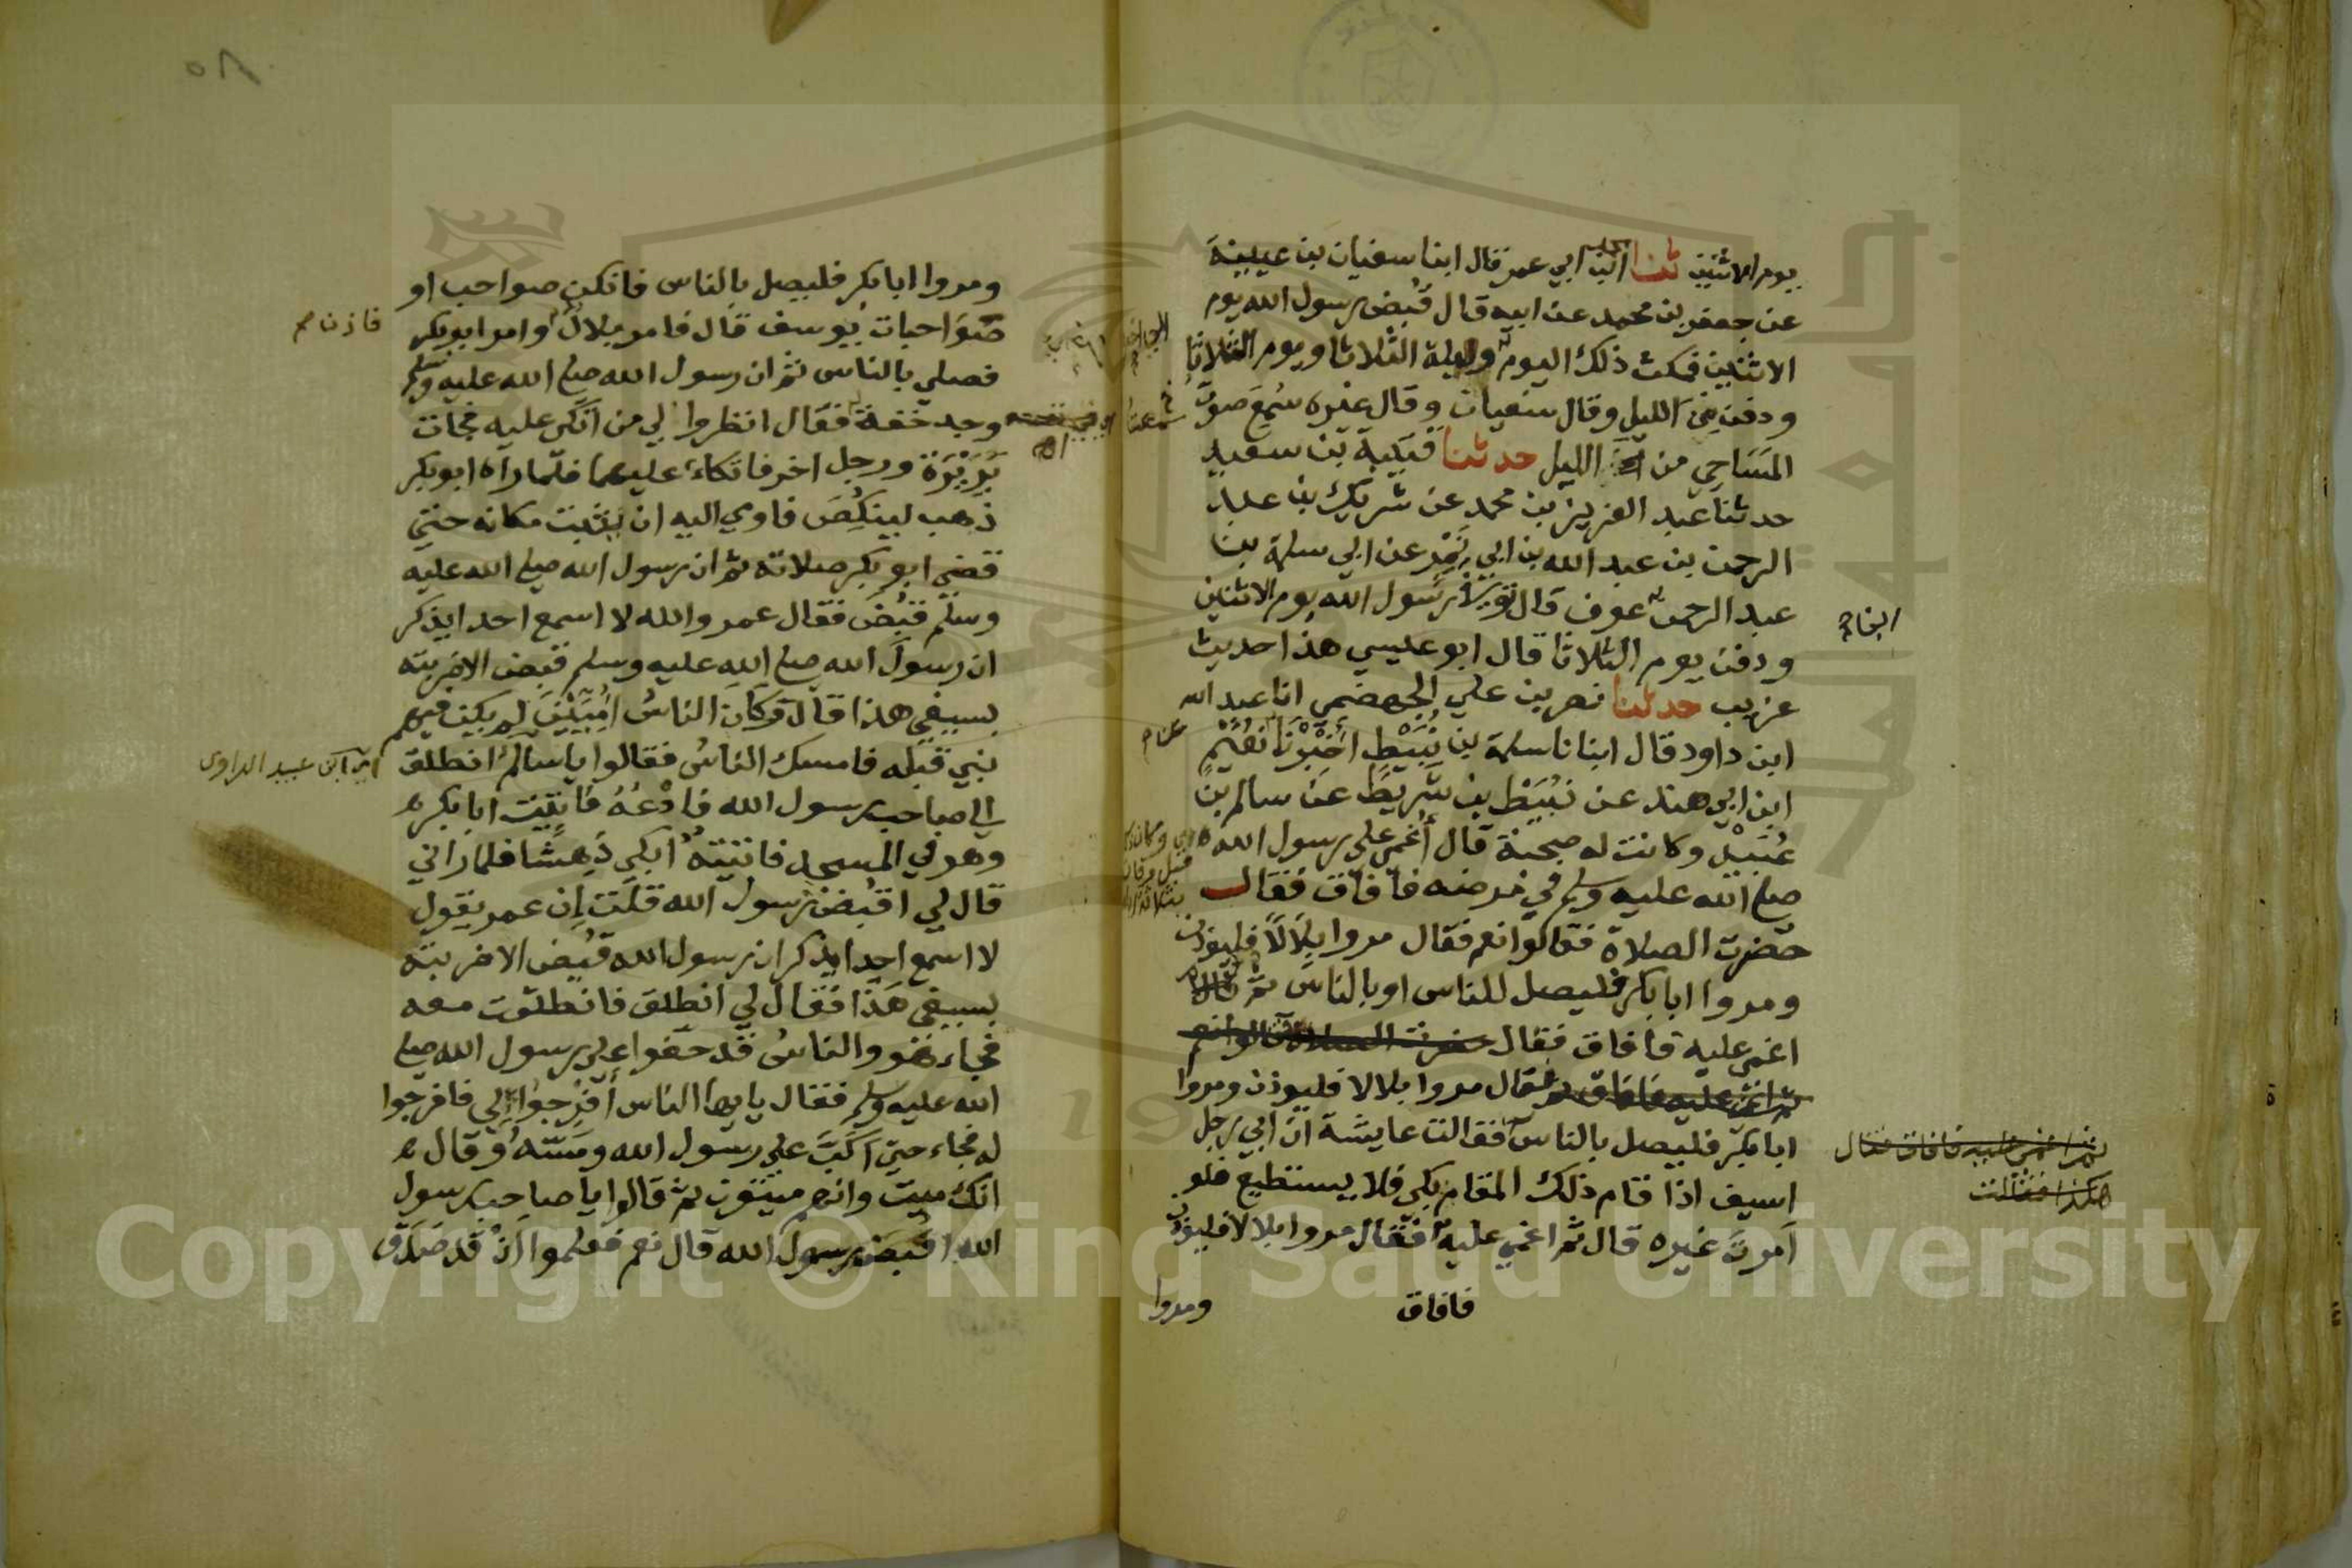 يوم الاثنين ثنا ابن ابي عمر قال ابنا سفيان بن عيينة
عن جعفر بن محمد عن ابيه قال قُبض رسول الله يوم
الاثنين فمكث ذلك اليوم وليلة الثلاثا ويوم الثلاثا
ودفن من الليل وقال سفيان وقال غيره سُمِعَ صوت
المَسَاحِي من الليل حدثنا قتيبة بن سعيد
حدثنا عبد العزيز بن محمد عن شريك بن عبد
الرحمن بن عبد الله بن ابي نَمِر عن ابي سلمة بن
عبد الرحمن عوف قال توفي رسول الله يوم الاثنين
ودفن يوم الثلاثا قال ابو عيسي هذا حديث
غريب حدثنا نصر بن علي الجهضمي انا عبد الله
ابن داود قال ابنانا سلمة بن نُبَيْطٍ أَخْبَرَنَا نُعَيْمُ
ابن ابي هند عن نُبَيْط بن شَرِيط عَن سالم بن
عُبَيْدٍ وكانت له صحبة قال أُغمي علي رسول الله
صلي الله عليه وسلم في مرضه فافاق فقال
حضرت الصلاة فقالوا نعم فقال مروا بِلَالًا فليوذن
ومروا ابا بكر فليصل للناس او بالناس ثم قال
اغمي عليه فافاق فقال حضرت الصلاة قالوا نعم
ثم اغمي عليه فافاق فقال مروا بلالا فليوذن ومروا
ابا بكر فليصل بالناس فقالت عايشة ان ابي رجل
اسيف اذا قام ذلك المقام بكي فلا يستطيع فلو
اَمرتَ غيره قال ثم اغمي عليه فقال مروا بلالا فليوذن
فافاق
ومروا
ثم اغمي عليه فافاق فقال
هكذا فقالت
٥٨
ومروا ابا بكر فليصل بالناس فانكن صواحب او
صَوَاحبات يوسف قال فامر بلالٌ وامر ابو بكر
فصلي بالناس ثم ان رسول الله صلي الله عليه وسلم
وجد خفة فقال انظروا لي من اتكي عليه فجات
بَرِيْرَة ورجل اخر فاتكاء عليهما فلما راه ابو بكر
ذهب لينكُصَ فاومي اليه ان يثبت مكانه حتي
قضي ابو بكر صلاته ثم ان رسول الله صلي الله عليه
وسلم قُبِضَ فقال عمر والله لا اسمع احدا يذكر
ان رسولَ الله صلي الله عليه وسلم قبض الا ضربته
بسيفي هذا قال وَكَانَ الناسُ اُمِّيِّيْنَ لم يكن فيهم
نبي قبْله فامسك الناسُ فقالوا يا سالمُ انطلق
الي صاحب رسول الله فادْعُهُ فاتيت ابا بكر
وهو في المسجد فاتيتهُ ابكي دَهِشًا فلما راني
قال لي اقُبِضَ رسول الله قلت اِن عمر يقول
لا اسمع احدا يذكر ان رسول الله قُبِض الا ضربته
بسيفي هَذَا فقال لي انطلق فانطلقت معه
فجاء هو والناسُ قد حفوا علي رسول الله صلي
الله عليه وسلم فقال يا ايها الناس اَفْرِجُوا لي فافرجوا
له فجاء حتي اَكَبَّ علي رسول الله ومَسَّهُ وقال
انك ميت وانهم ميتون ثم قالوا يا صاحب رسول
الله اقُبِضَ رسولُ الله قال نعم فعلموا اَنْ قد صَدَقَ